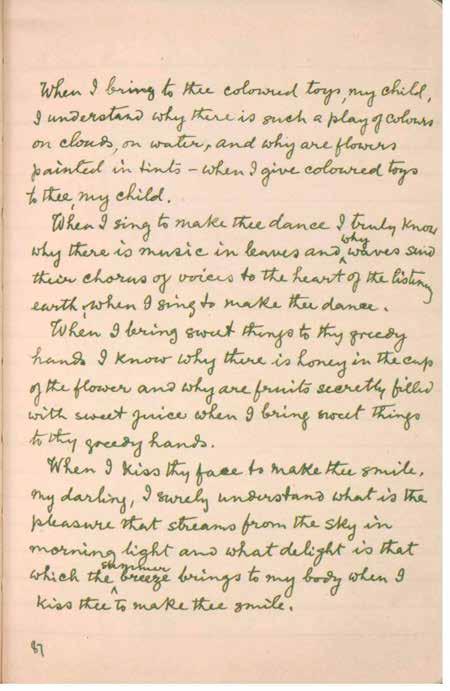 When I bring to thee coloured toys, my child,
I understand why there is such a play of colours
on clouds, on water, and why are flowers
painted in tints – when I give coloured toys
to thee, my child.
When I sing to make thee dance I truly know
why there is music in leaves and why waves send
their chorus of voices to the heart of the listening
earth, when I sing to make thee dance.
When I bring sweet things to thy greedy
hands I know why there is honey in the cup
of the flower and why are fruits secretly filled
with sweet juice when I bring sweet things
to thy greedy hands.
When I kiss thy face to make thee smile,
my darling, I surely understand what is the
pleasure that streams from the sky in
morning light and what delight is that
which the summer breeze brings to my body when I
kiss thee to make thee smile.
87